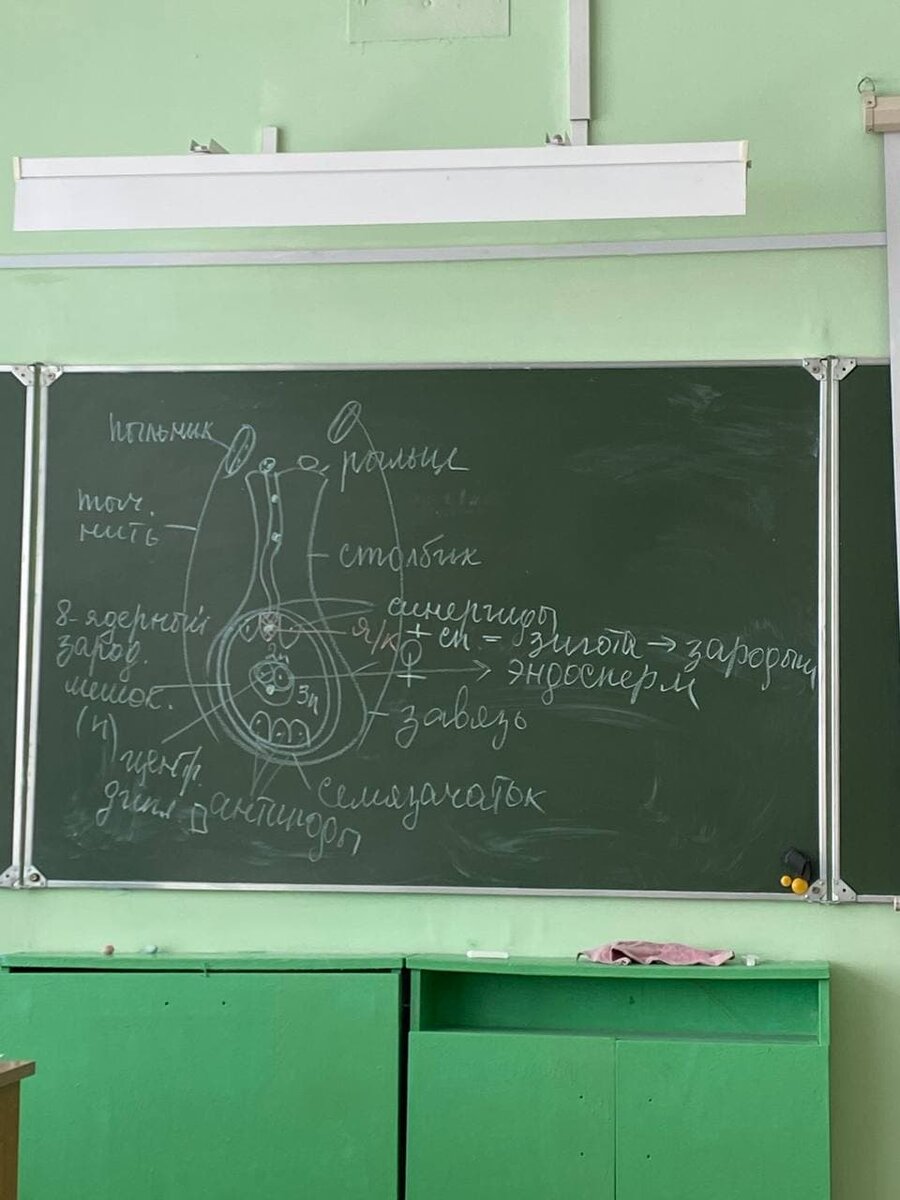 пыльник
рыльце
тыч.
нить
столбик
синергиды
8-ядерный
я/к + сп = зигота → зародыш
зарод.
♀
2n
→ эндосперм
мешок.
3n
(n)
завязь
центр.
семязачаток
дипл.
антиподы